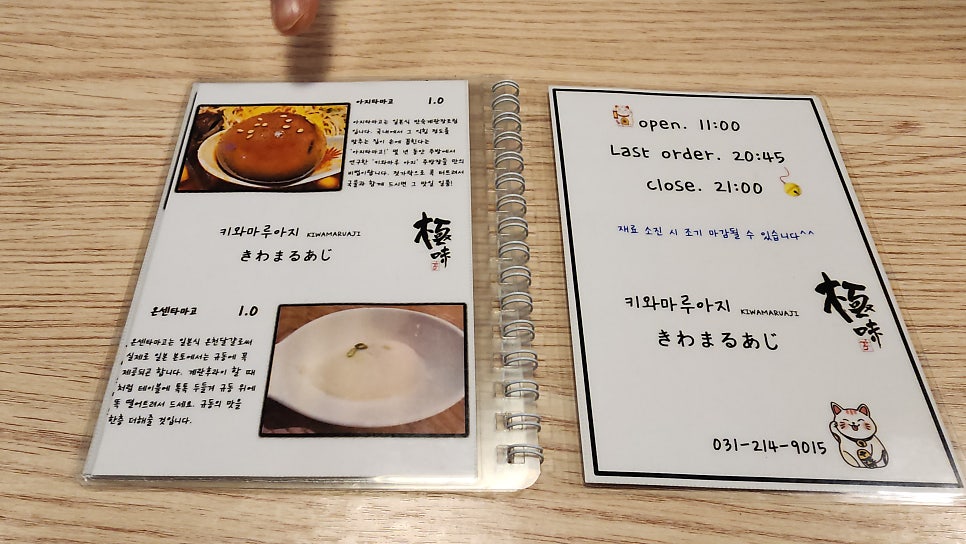 아지타마고 1.0
아지타마고는 일본식 반숙계란장조림
입니다. 국내에서 그 익힘 정도를
맞추는 집이 손에 꼽힌다는
'아지타마고!' 몇 년 동안 주방에서
연구한 '키와마루 아지' 주방장들 만의
비법이랍니다. 젓가락으로 톡 터트려서
국물과 함께 드시면 그 맛일 일품!
키와마루아지 KIWAMARUAJI
きわまるあじ
極味
온센타마고 1.0
온센타마고는 일본식 온천달걀로써
실제로 일본 본토에서는 규동에 꼭
제공되곤 합니다. 계란후라이 할 때
처럼 테이블에 톡톡 두들겨 규동 위에
똑 떨어트려서 드세요. 규동의 맛을
한층 더해줄 것입니다.
open. 11:00
Last order. 20:45
close. 21:00
재료 소진 시 조기 마감될 수 있습니다^^
키와마루아지 KIWAMARUAJI
きわまるあじ
極味
031-214-9015